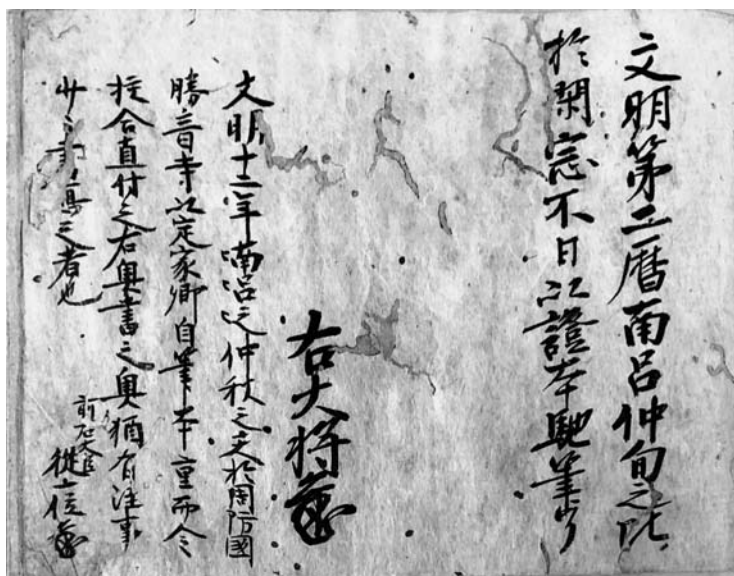 文明第二暦南呂仲旬之比
於閑窓不日以證本馳筆了
右大将
文明十二年南呂之仲秋之天於周防國
勝音寺以定家卿自筆本重而令
校合直付之右奥書之奥猶有注事
少々計寫之者也
前左大臣
従一位